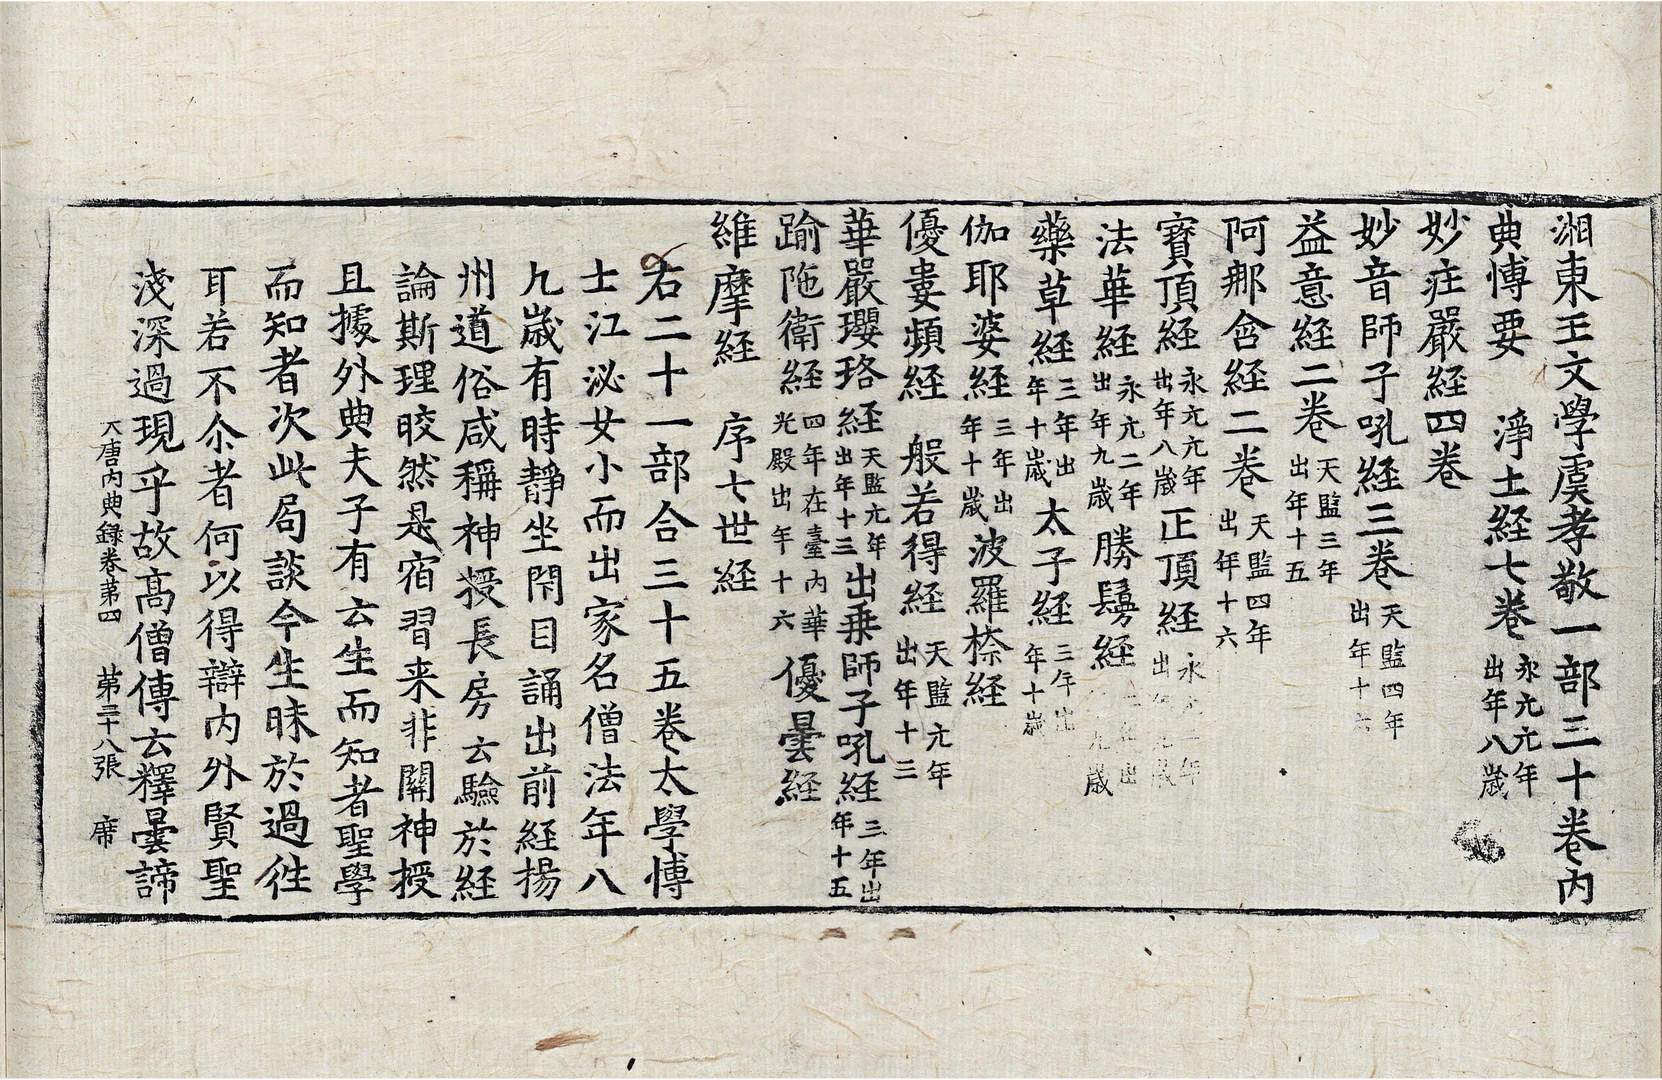 湘東王文學虞孝敬一部三十卷內
典博要　淨土経七卷永元元年出年八歲
妙庄嚴経四卷
妙音師子吼経三卷天監四年出年十六
益意経二卷天監三年出年十五
阿那含経二卷天監四年出年十六
寶頂経永元元年出年八歲正頂経永元年出年歲
法華経永元二年出年九歲勝鬘経出九歲
藥草経三年出年十歲太子経三年出年十歲
伽耶婆経三年出年十歲波羅㮈経
優婁頻経　般若得経天監元年出年十三
華嚴瓔珞経天監元年出年十三出乗師子吼経三年出年十五
踰陁衛経四年在臺內華光殿出年十六優曇経
維摩経　序七世経
右二十一部合三十五卷太學博
士江泌女小而出家名僧法年八
九歲有時靜坐閇目誦出前経揚
州道俗咸稱神授長房云驗於経
論斯理晈然是宿習来非關神授
且據外典夫子有云生而知者聖學
而知者次此局談今生昧於過徃
耳若不尒者何以得辯内外賢聖
淺深過現乎故髙僧傳云釋曇諦
大唐内典録卷苐四　苐三十八張　席